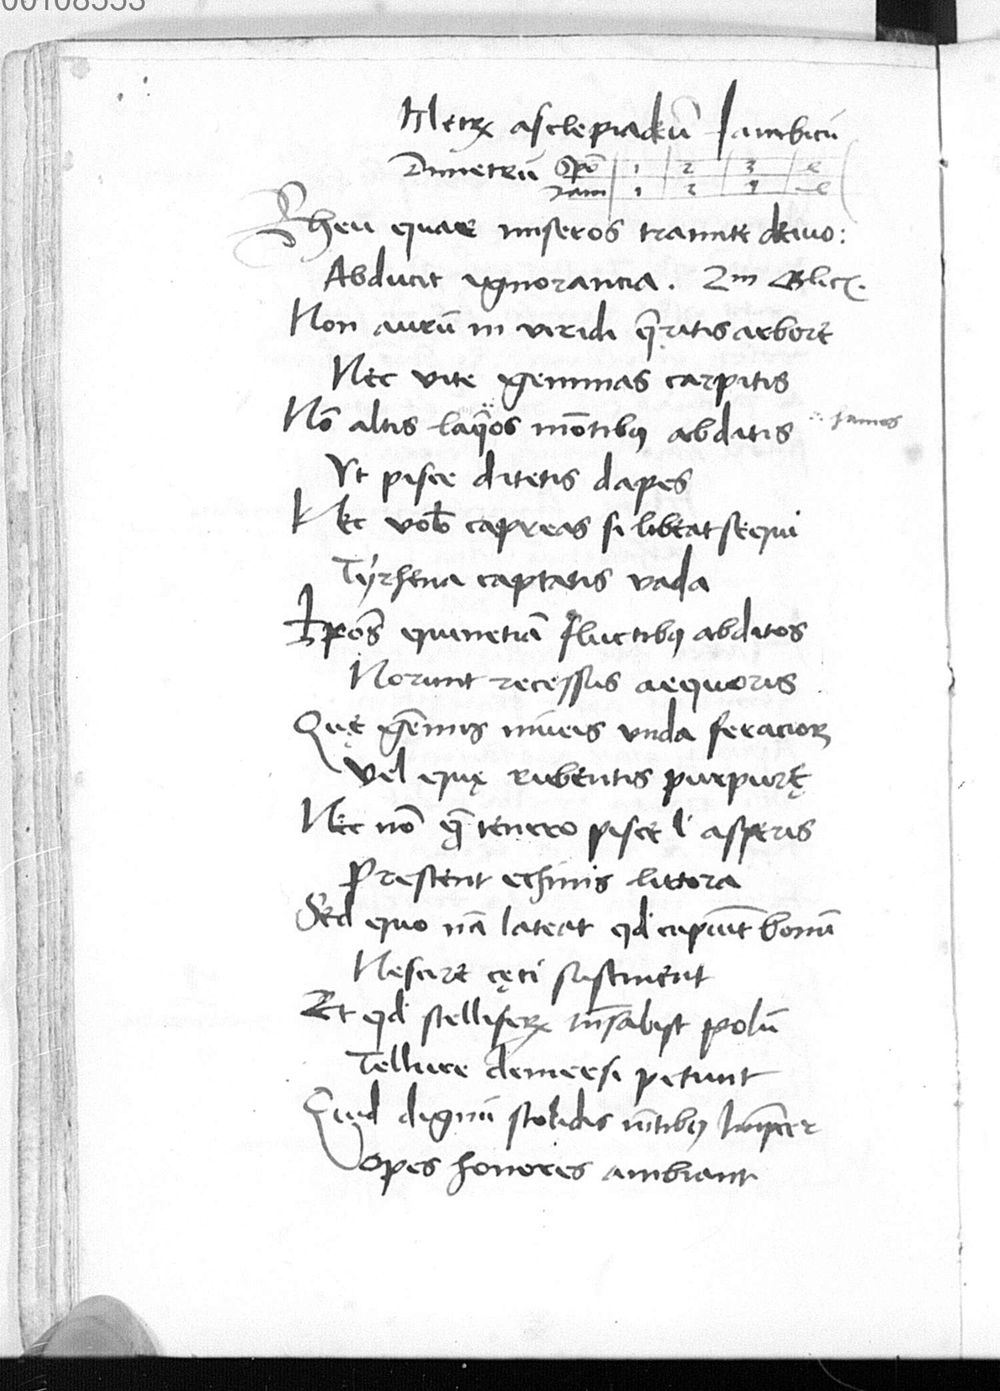 00108553
Metrꝝ asclepiadeū Iambicū
Dimetrū Spō 1 2 3 e
Iam 1 2 e
Eheu quae miseros tramite deuio:
Abducit ignorancia. 2m
Non aurū in viridi q̄ritis arbore
Nec vite gemmas carpitis
Nō altis laq̄os mōtibꝫ abditis
famos
Vt pisce ditetis dapes
Nec vob̄ capreas si libeat sequi
Tyrhena captatis vada
Ipōs quinetiā fluctibꝫ abditos
Norunt recessus aequoris
Quę gēmis niueis vnda feracior
Vel quę rubentis purpurę
Nec nō q̄ tenero pisce l asperis
Prestent echinis littora
Sed quo nā lateat qd cupiūt bonū
Nescire cęci sustinent
Et qd stelliferꝝ trāsabijt polū
Tellure demersi petunt
Quid dignū stolidis mētibꝫ īprecer
Opes honores ambiant